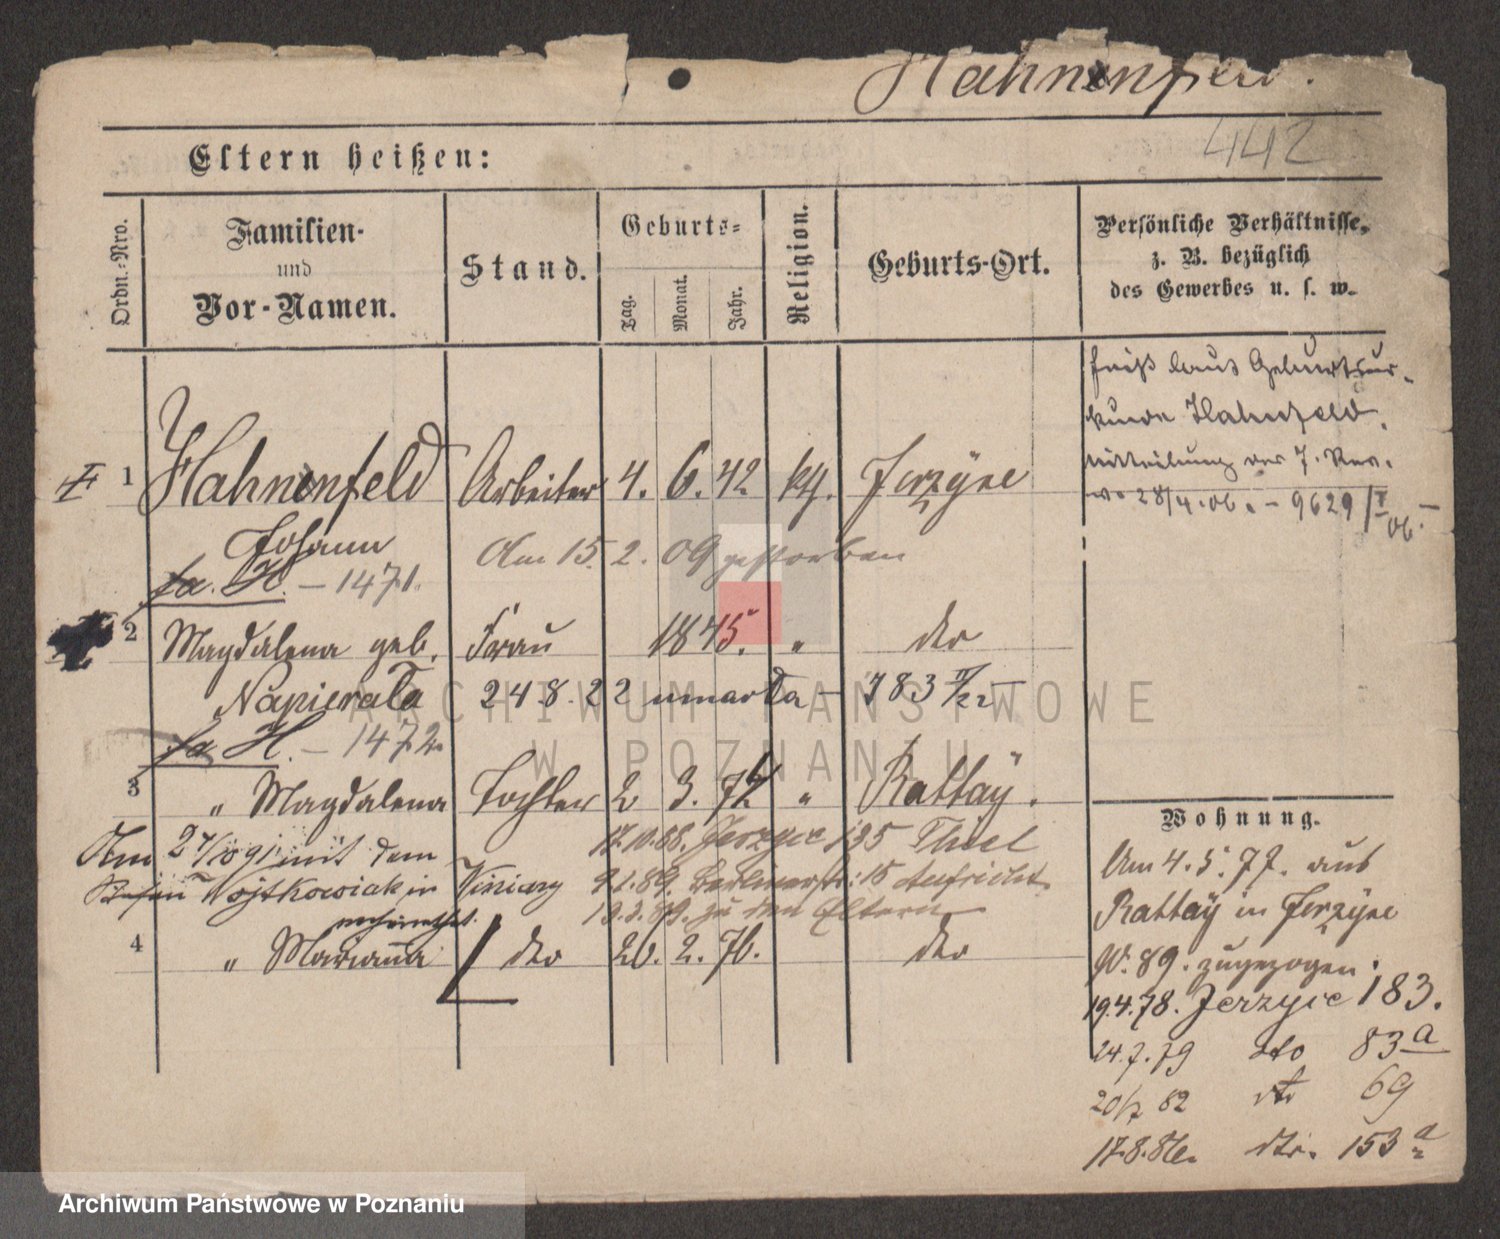 Hahnenfeld.
442
Eltern heißen:
Ordn.-Nro.
Familien-
und
Vor-Namen.
Stand.
Geburts-
Tag.
Monat.
Jahr.
Religion.
Geburts-Ort.
Persönliche Verhältnisse,
z. B. bezüglich
des Gewerbes u. s. w.
heißt laut Geburtsur-
kunde Hahnfeld.
Mitteilung des 7. Rev.
28/4.06. - 9629/I 06.
1 Hahnenfeld Arbeiter 4. 6. 42 kg. Jerzyce
Johann
Am 15. 2. 09 gestorben
fa. H. - 1471.
2 Magdalena geb. Frau 1845. " dto
Napierała 24.8.22 umarła - 783
fa H. - 1472
3 " Magdalena Tochter 2 3. 74 " Rattaÿ.
17.10.88. Jerzyce 135 Thiel
Am 27/10 91 mit dem
Stefan Wojtkowiak in Winiary 9.1.89. Berlinerstr: 15 Aufricht
verheirathet. 19.3.89. zu den Eltern
4 " Marianna dto 20. 2. 76. dto
Wohnung.
Am 4. 5. 77. aus
Rattaÿ in Jerzyce
N. 89. zugezogen.
19.4.78. Jerzyce 183.
24.7.79 dto 83a
20/7 82 dto 69
17.8.86. dto. 153a
ARCHIWUM PAŃSTWOWE
W POZNANIU
Archiwum Państwowe w Poznaniu